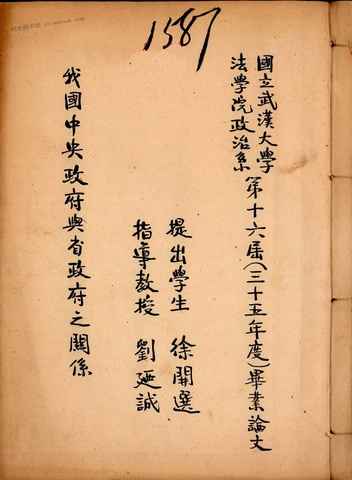 1587
國立武漢大學
法學院政治系
第十六屆(三十五年度)畢業論文
提出學生 徐開選
指導教授 劉廼誠
我國中央政府與省政府之關係